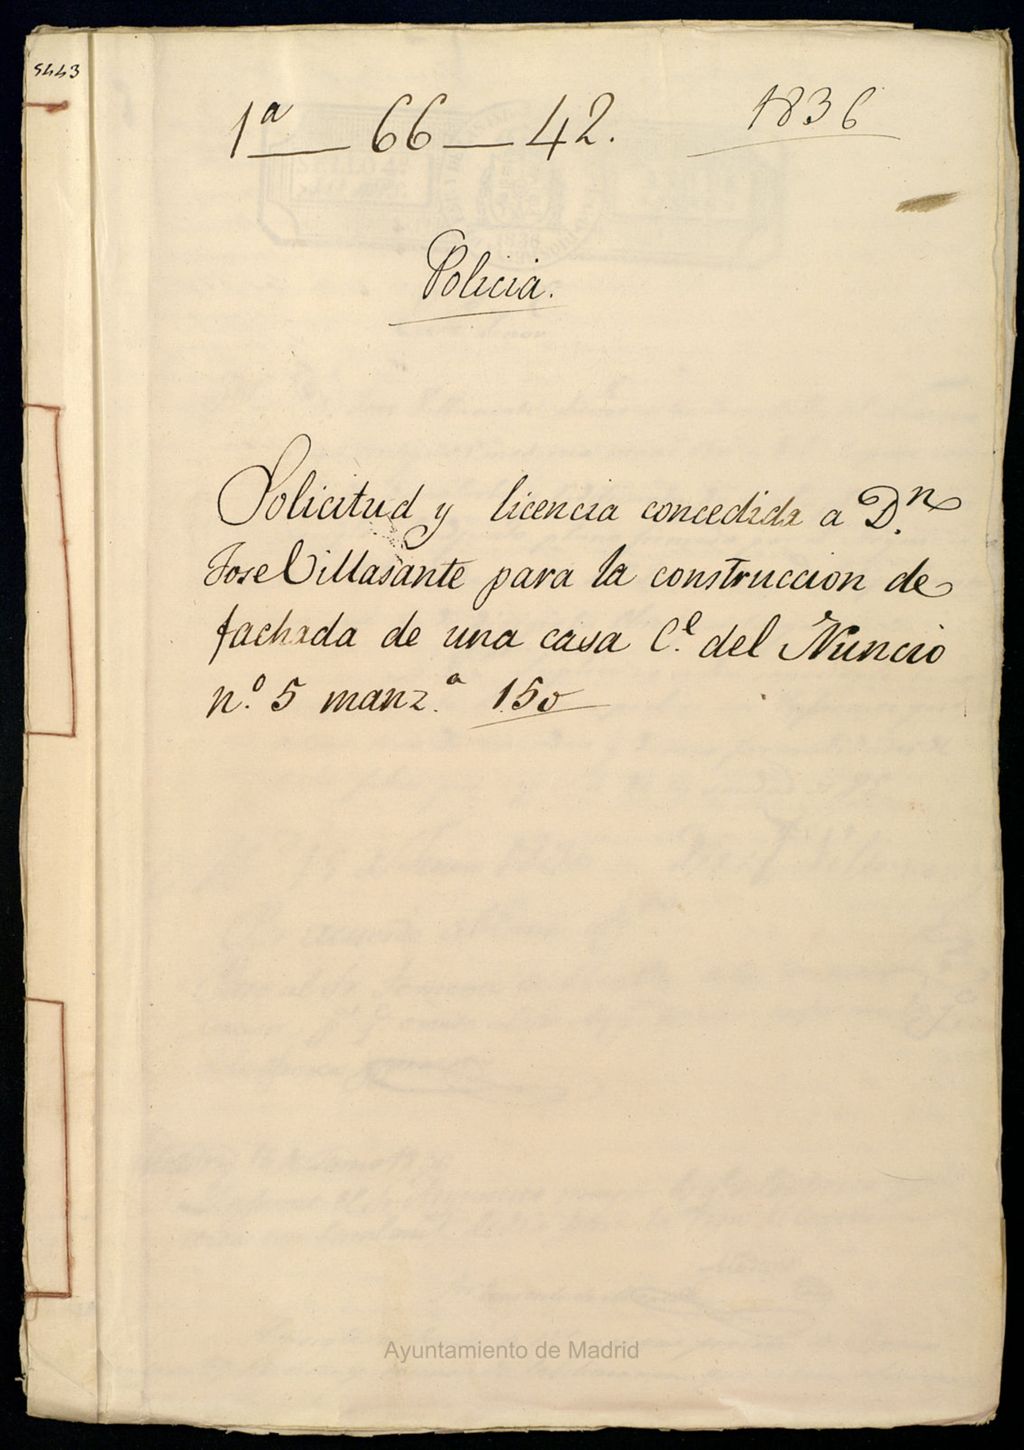 5443
1ª — 66 — 42. 1836
Policia.
Solicitud y licencia concedida a D.ⁿ
Jose Villasante para la construccion de
fachada de una casa C.ᵉ del Nuncio
n.º 5 manz.ª 150
Ayuntamiento de Madrid